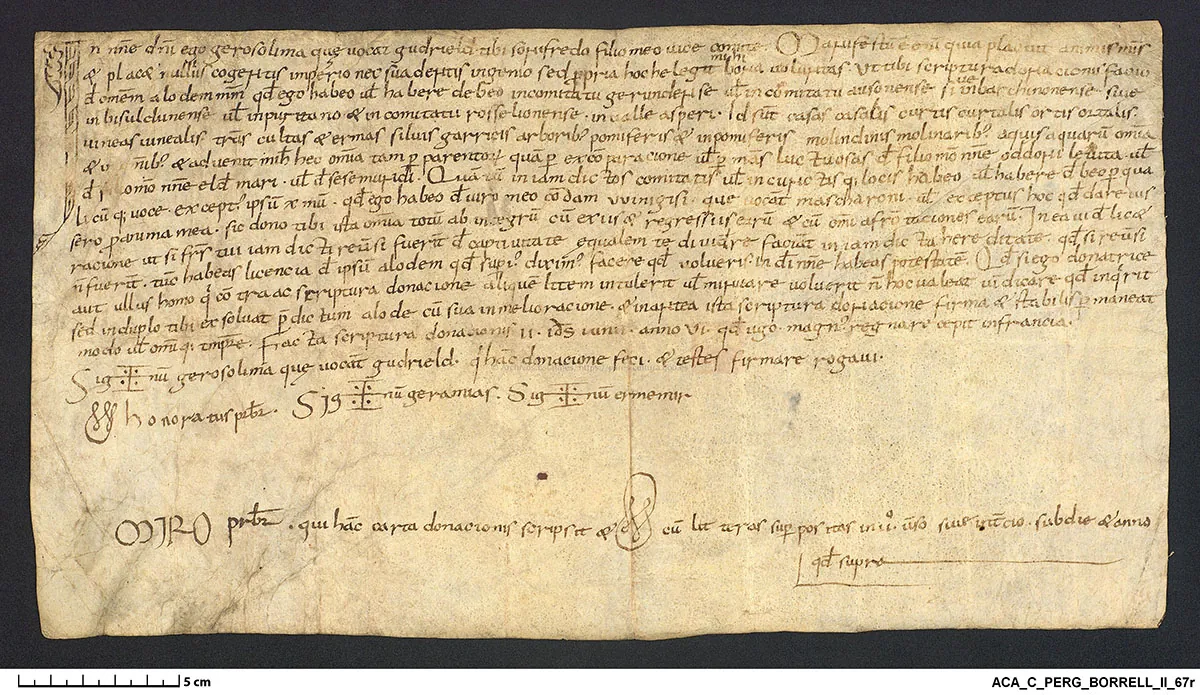 In nne dni ego gerosolima que vocat gudrield tibi sonifredo filio meo vice comite. Manifestu e eni quia placuit animis meis
& placet nullius cogentis imperio nec suadentis ingenio sed ppria hoc helegit mihi bona voluntas. Ut tibi scriptura donacionis facio
d omem alodem meum qd ego habeo ul habere debeo in comitatu gerundense ul in comitatu ausonense sive in barchinonense sive
in bisuldunense ul in p&ritano & in comitatu rosselionense. in valle asperi. Id sut casas casalis curtis curtalis ortis ortalis.
vineas vinealis tras cultas & ermas silvis garricis arborib pomiferis & inpomiferis molindinis molinarib aquis aquaru omia
& omib & advenit mih hec omia tam p parentoru quam p exco paracione ul p mas luctuosas d filio meo nne oddoni levita. ul
d filio meo nne eldemari. ul d sesemundi. Quantu in iam dictos comitatis ul in cunctis q locis habeo ul habere debeo p qua
licu q voce. except ipsu x mu. qd ego habeo d viro meo condam vvinigisi. que vocat mascharoni. ul exceptus hoc qd dare ius
sero p anima mea. sic dono tibi ista omia totu ab integru cu exius & regressius earu & cu omi afrontaciones earu. In ea vid lic&
racione ut si frs tui iam dicta reusi fuerit d captivitate equalem te dividre faciat in iam dicta hereditate. qd si reusi
n fuerit. tuc habeas licencia d ipsu alodem qd sup diximus facere qd volueris in di nne habeas potestate. Qd si ego donatrice
aut ullus homo q contra ac scriptura donacione alique litem intulerit ul inruare voluerit n hoc valeat vindicare qd inqrit
sed in duplo tibi exsoluat p dictum alode cu sua inmelioracione. & in antea ista scriptura donacione firma & stabilis p maneat
modo ul omiq tmpre. Facta scriptura donacionis II. ids iunii. anno VI. qd ugo magn regnare cepit in francia.
Sig num gerosolima que vocat gudrield. q hac donacione feci. & testes firmare rogavi.
SSS honoratus prbr. Sig nu geramias. Sig nu ermemir.
MIRO prbr. qui hac carta donacionis scripsit & SSS cu litteras sup positas in v. vso sive intencio. sub die & anno
qd supra